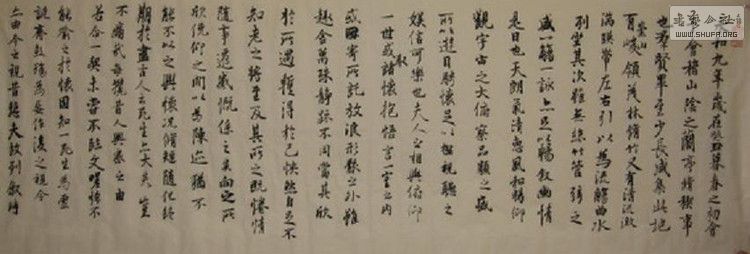 永和九年歲在癸丑暮春之初會
于會稽山陰之蘭亭脩稧事
也羣賢畢至少長咸集此地
有崇山峻領茂林脩竹又有清流激
湍暎帶左右引以為流觴曲水
列坐其次雖無絲竹管弦之
盛一觴一詠亦足以暢叙幽情
是日也天朗氣清惠風和暢仰
觀宇宙之大俯察品類之盛
所以遊目騁懷足以極視聽之
娛信可樂也夫人之相與俯仰
一世或取諸懷抱悟言一室之內
或因寄所託放浪形骸之外雖
趣舍萬殊靜躁不同當其欣
於所遇暫得於己怏然自足不
知老之將至及其所之既惓情
隨事遷感慨係之矣向之所
欣俛仰之間以為陳迹猶不
能不以之興懷況脩短隨化終
期於盡古人云死生亦大矣豈
不痛哉每攬昔人興感之由
若合一契未嘗不臨文嗟悼不
能喻之於懷固知一死生為虛
誕齊彭殤為妄作後之視今
亦由今之視昔悲夫故列叙時
WWW.SHUFA.ORG